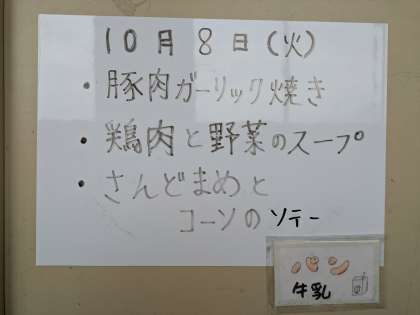 10月8日(火)
・豚肉ガーリック焼き
・鶏肉と野菜のスープ
・さんどまめと
コーンのソテー
パン
牛乳